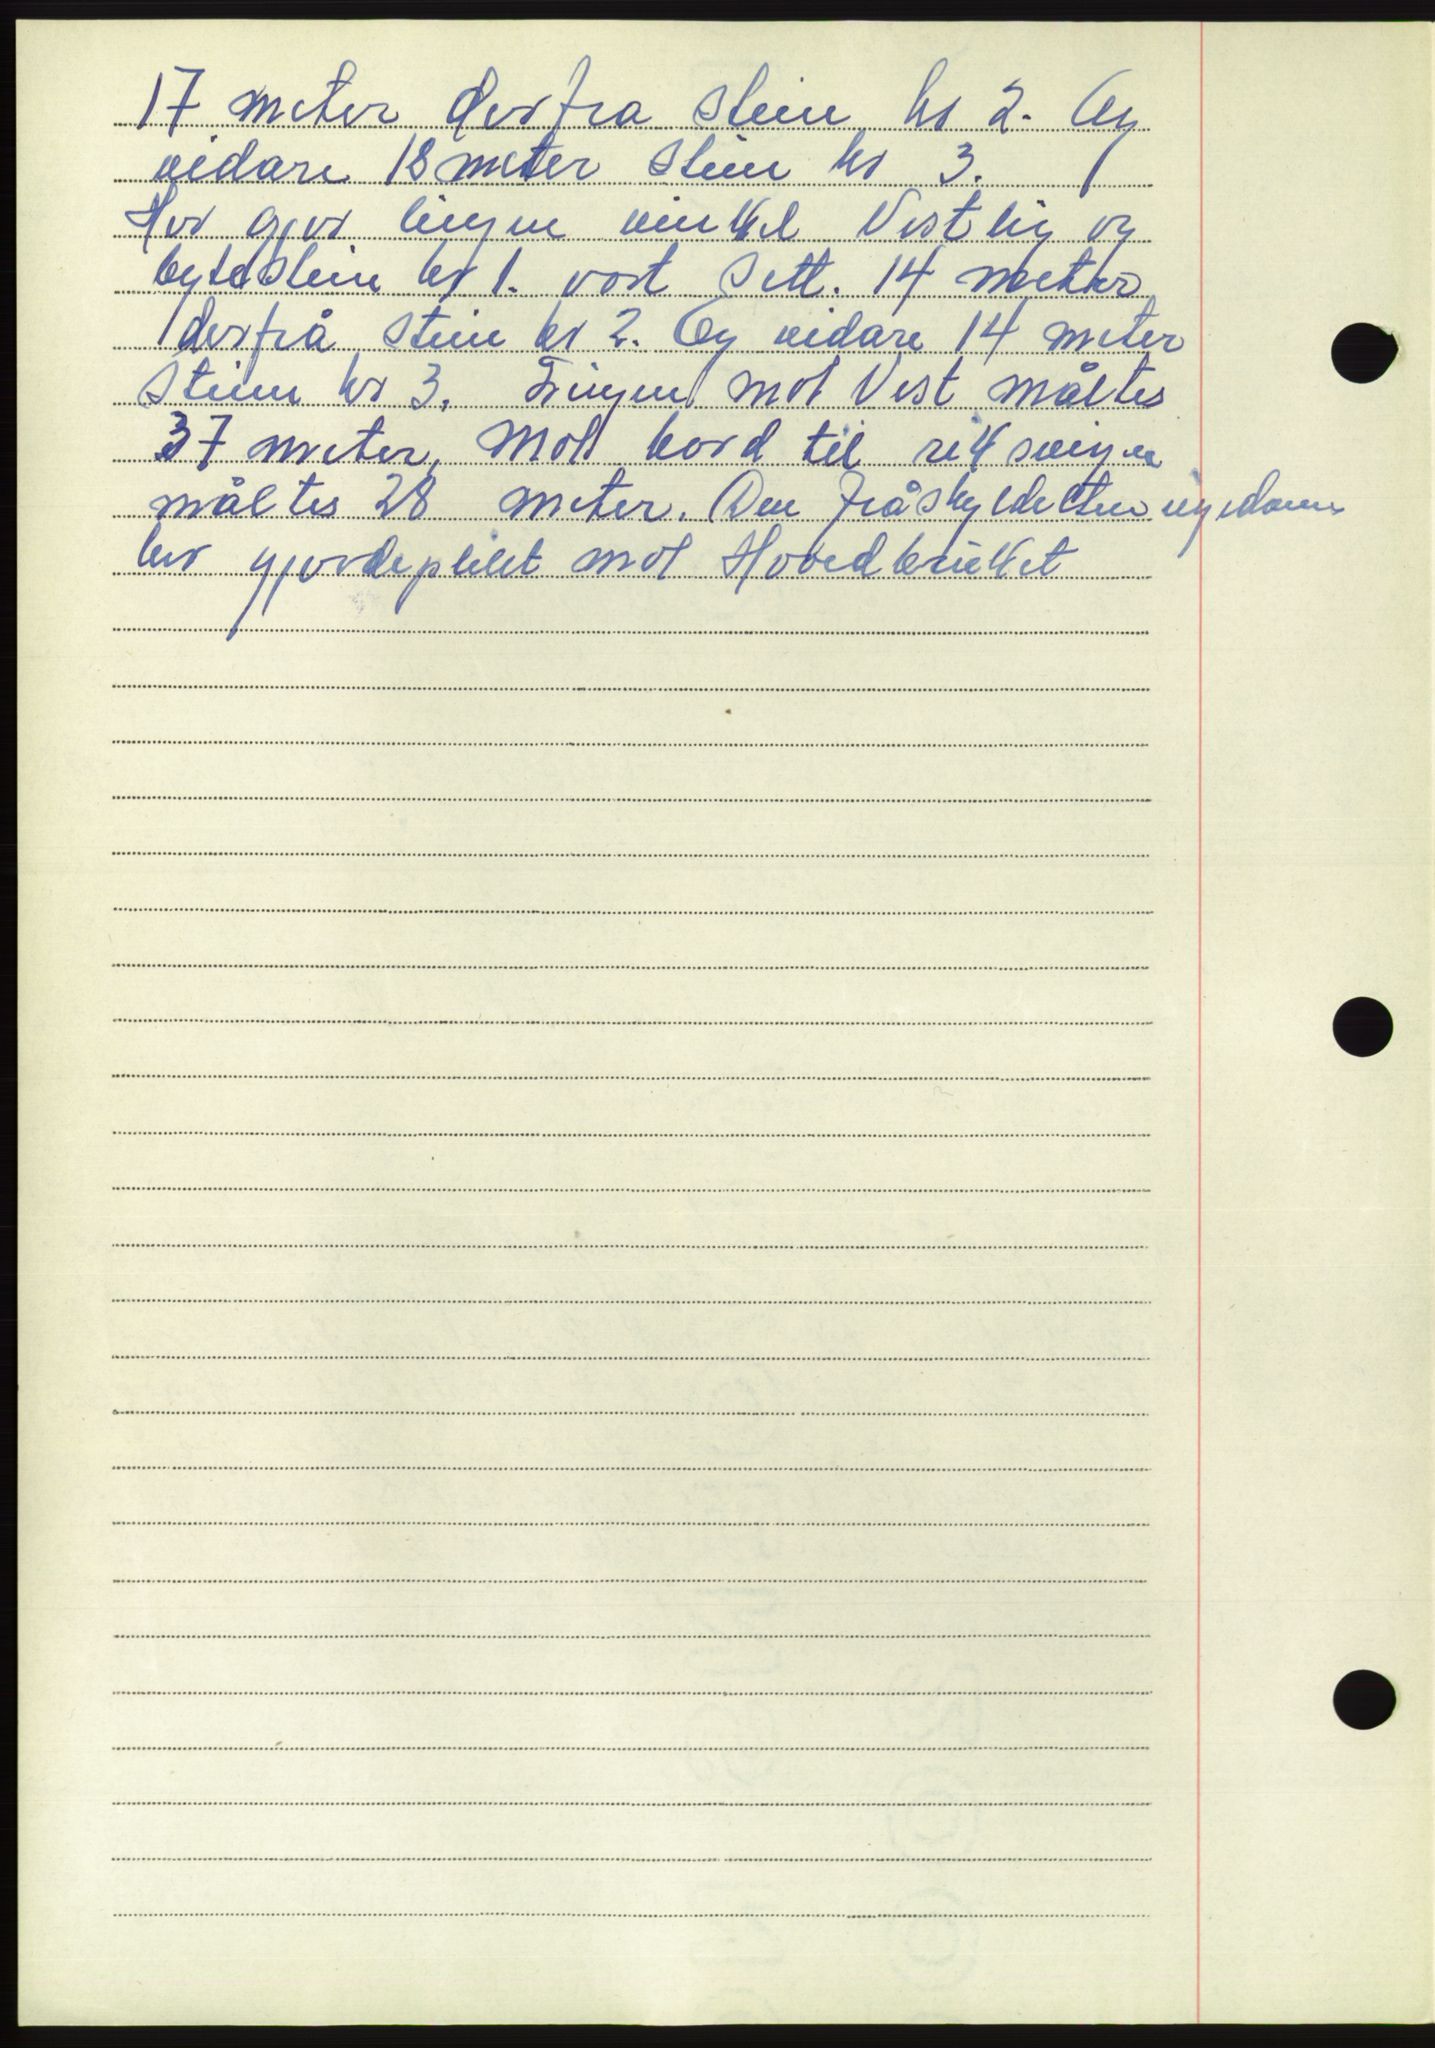 17 meter derfra stein nr 2. Og
vidare 18 meter stein nr 3.
Her gjer lingen vinkel Vestlig og
bytestein nr 1. vart sett. 14 meter
derfrå stein nr 2. Og vidare 14 meter
stein nr 3. Lingen mot Vest måltes
37 meter, mot nord til riksveigen
måltes 28 meter. Den fråskyldte
har gjerdeplikt mot Hovedbruket